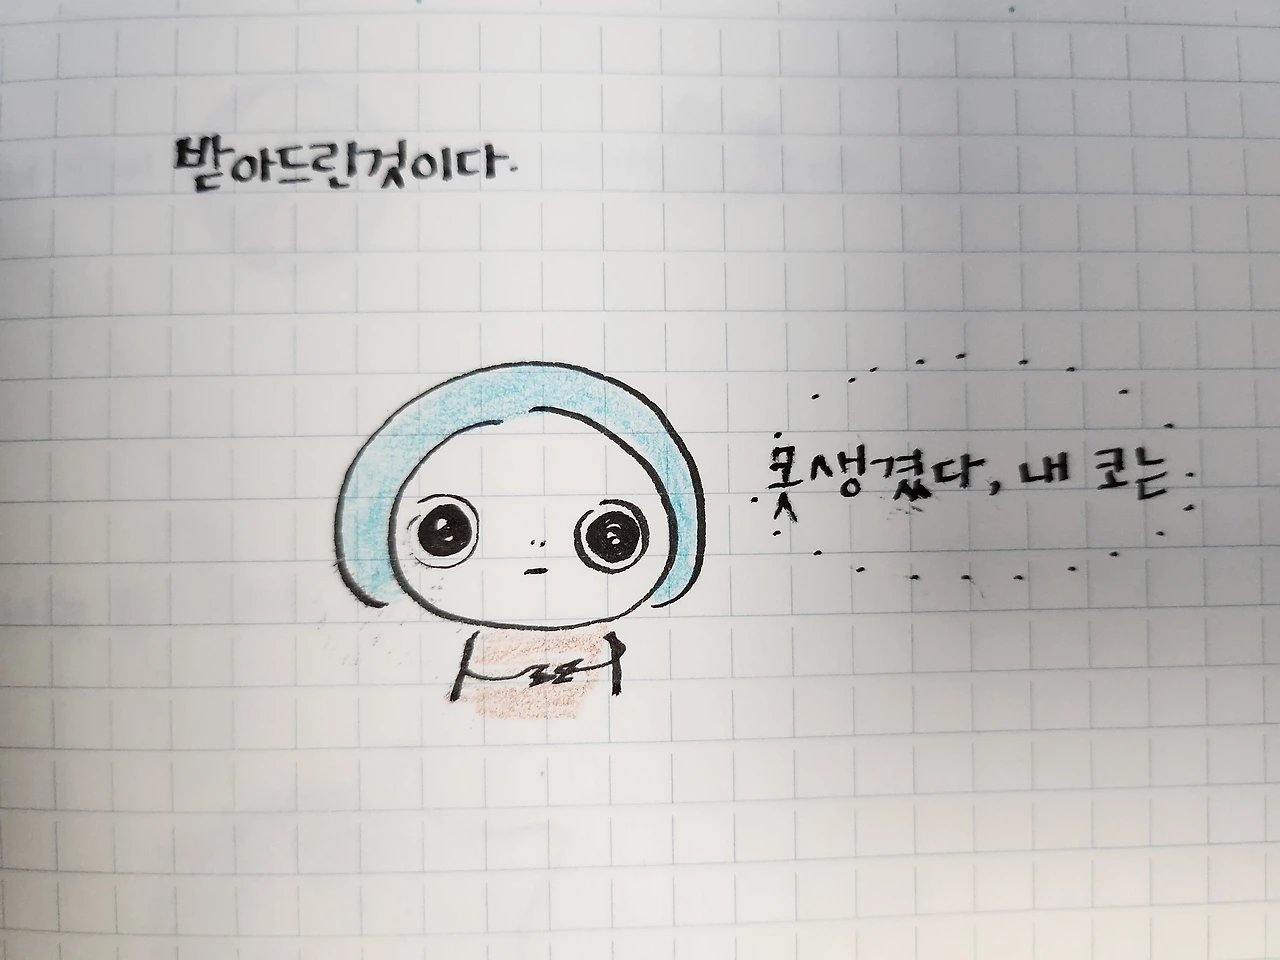 받아드린것이다.
못생겼다, 내 코는.